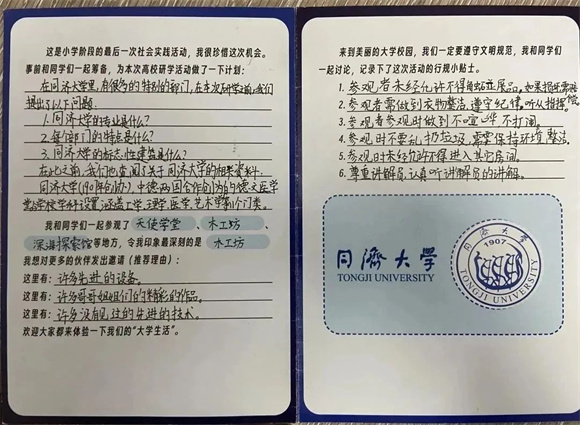 这是小学阶段的最后一次社会实践活动，我很珍惜这次机会。
事前和同学们一起筹备，为本次高校研学活动做了一下计划：
在同济大学里，有很多的特别的部门，在本次研学之前，我们
提出了以下问题：
1.同济大学的专业是什么？
2.每个部门的特点是什么？
3.同济大学的标志性建筑是什么？
在此之前，我们也查阅了关于同济大学的相关资料.
同济大学(1907年创办)，中德两国合作创办的德文医学
堂，学校学科设置涵盖工学、理学、医学、艺术学等门类。
我和同学们一起参观了 天使学堂 、 木工坊 、
深海探索馆 等地方，令我印象最深刻的是 木工坊
我想对更多的伙伴发出邀请（推荐理由）：
这里有：许多先进的设备.
这里有：许多哥哥姐姐们的精彩的作品。
这里有：许多没见过的先进的技术。
欢迎大家都来体验一下我们的“大学生活”。
来到美丽的大学校园，我们一定要遵守文明规范，我和同学们
一起讨论，记录下了这次活动的行规小贴士。
1.参观者未经允许不得触碰展品，如果损坏需赔
2.参观者需做到衣物整洁，遵守纪律，听从指挥
3.参观者参观时做到不喧哗不打闹。
4.参观时不要乱扔垃圾，需要保持环境整洁.
5.参观时未经允许不得进入其它房间。
6.尊重讲解员，认真听讲解员的讲解。
同濟大學
TONGJI UNIVERSITY
1907
TONGJI UNIVERSITY